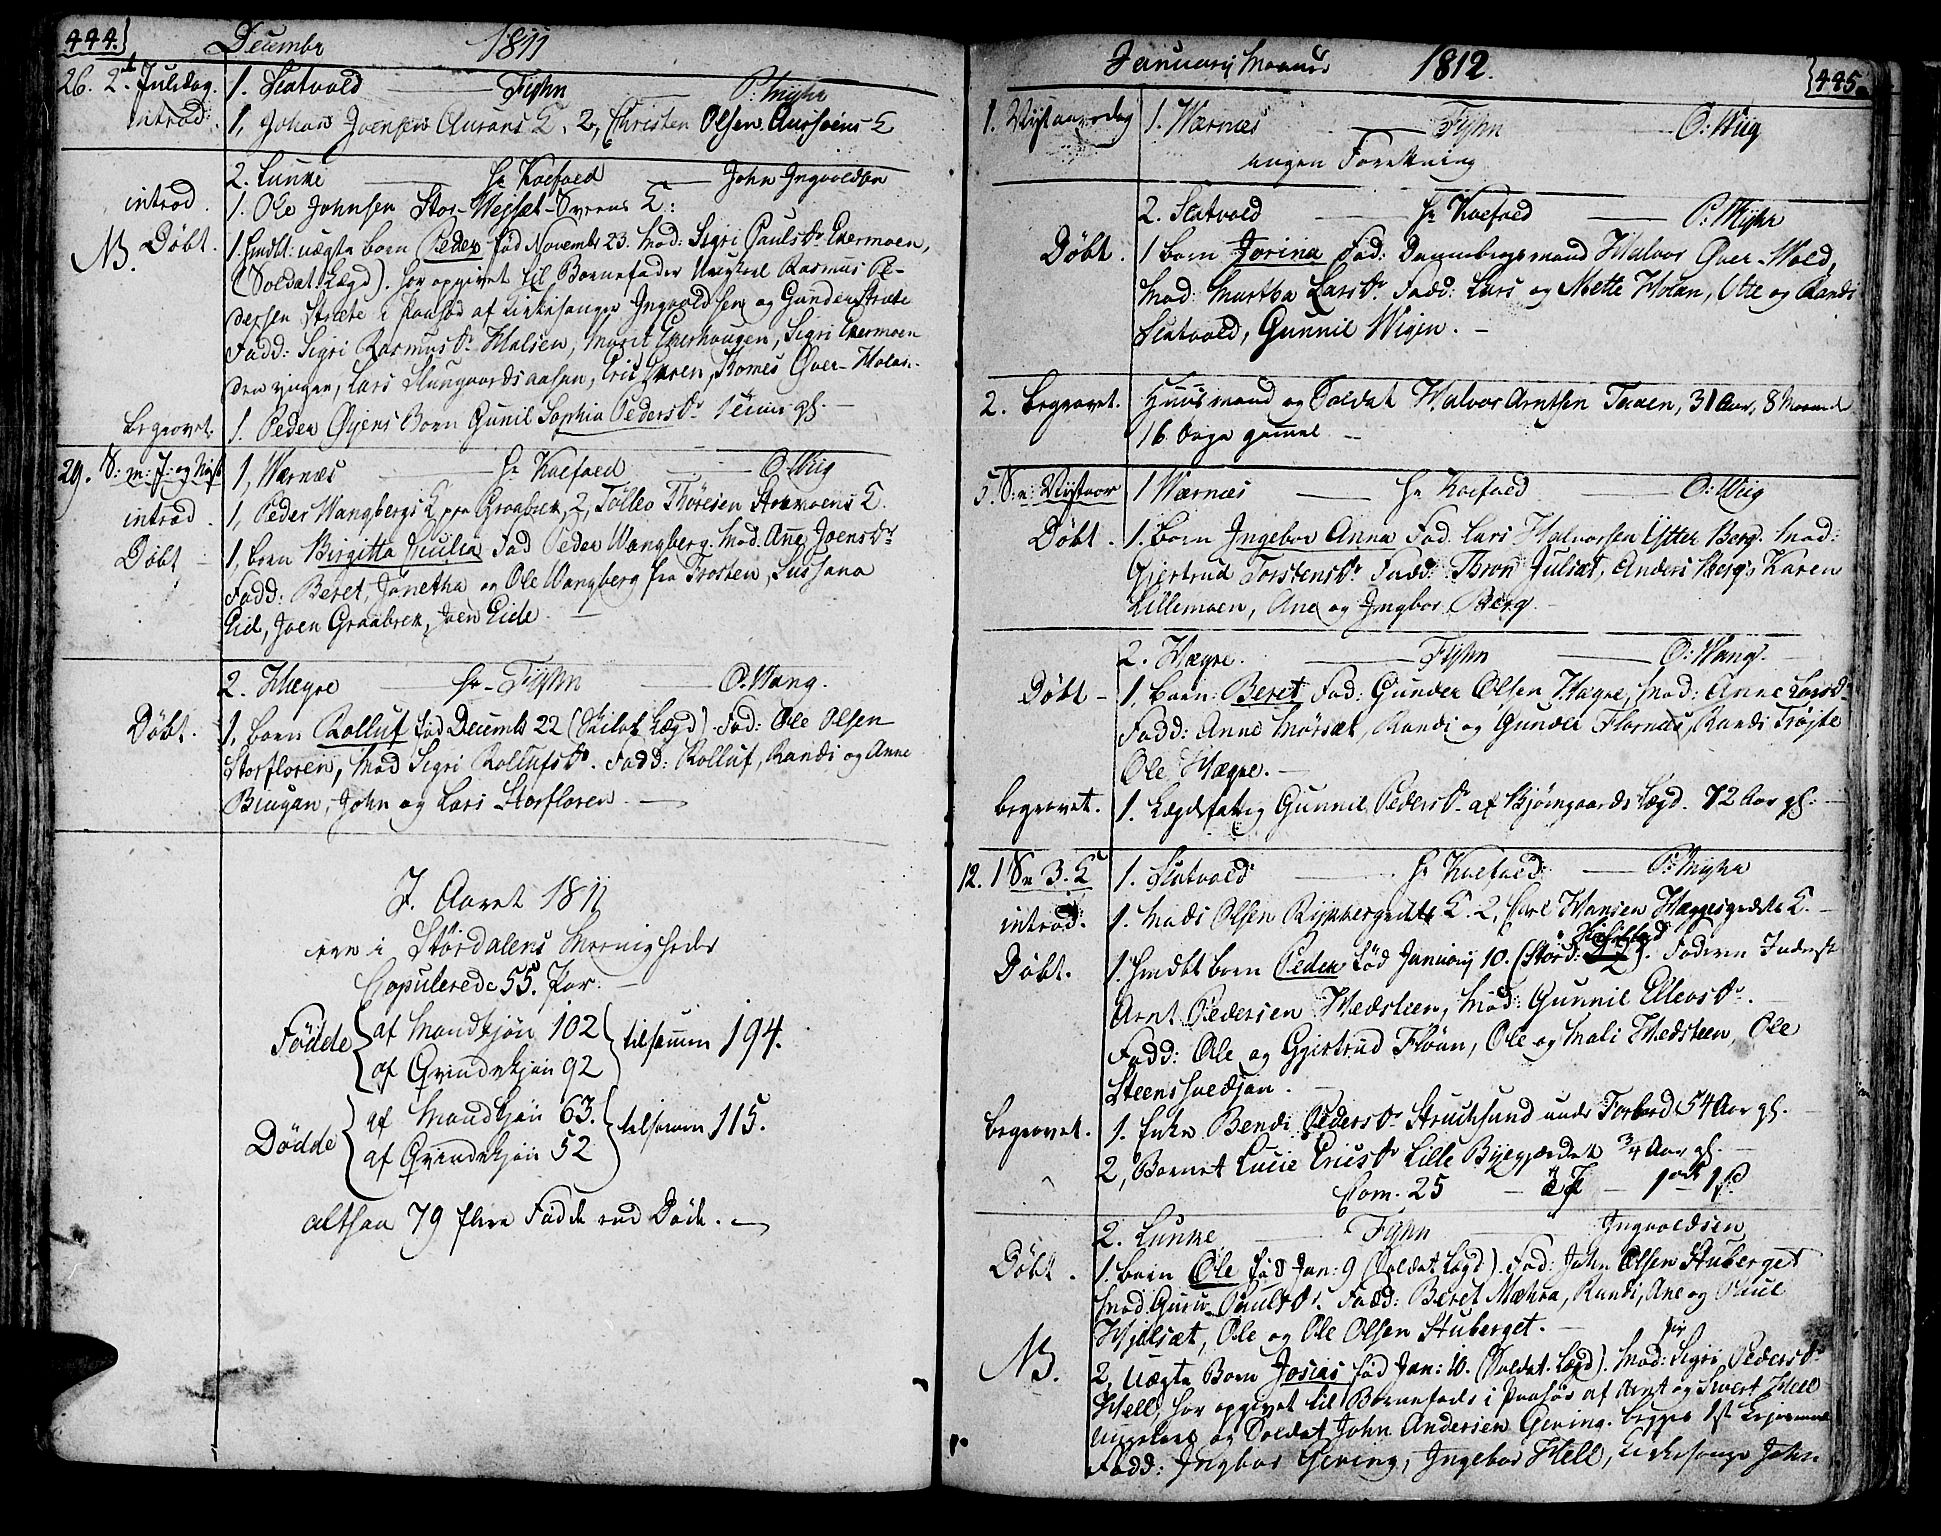 444.
Decembr 1811
26. 2d Juledag. 1. Scatvold Fyhn P: Myhr
introd: 1, Johan Joensen Aurans K. 2, Christen Olsen Aursoens K
2. Lunke Hr Koefoed John Ingvoldsen
introd. 1. Ole Johnsen Stor-Wejsæt-Sveens K:
NB. Døbt. 1. hmdbt: uægte barn Peder fød Novembr 23. Mod: Sigri Paulsdr Eermoen,
(Soldat Lægd). har opgivet til Barnefader Ungkarl Rasmus Pe-
dersen Stræte i paahør af Kirkesanger Ingvoldsen og Gunder Stræte
Fadd: Sigri Rasmusdr Halsen, Marit Everhaugen, Sigri Eermoen
den yngre, Lars Slungaardsaasen, Eric Eeren, Thomes Øver-Holan.
begravet. 1. Peder Øyens Barn Gunil Sophia Pedersdr 1 Uge gl.
29. S: m: J: og Nyt 1, Wærnæs Hr Koefoed O: Wiig
introd. 1, Peder Wangbergs K fra Graabrek, 2, Tollev Thoresen Stormoens K.
Døbt 1, barn Birgitta Cecilia Fad Peder Wangberg. Mod. Ane Joensdr
Fadd: Beret, Janetha og Ole Wangberg fra Frosten, Sussana
Eid, Joen Graabrek, Joen Eide.
2. Hægre Hr Fyhn O: Wang.
Døbt. 1, barn Rolluf fød Decembr 22 (Skiløb Lægd). Fad: Ole Olsen
Storfloren, Mod Sigri Rollufsdr. Fadd: Rolluf, Randi og Anne
Biugan, John og Lars Storfloren.
I Aaret 1811
ere i Størdalens Menigheder
Copulerede 55. Par.
Fødde af Mandkjøn 102
af Qvindekjøn 92 tilsamen 194.
Dødde af Mandkjøn 63.
af Qvindekjøn 52 tilsamen 115.
altsaa 79 flere Fødde end Døde.
Januarij Maaned 1812. 445.
1. Nytaarsdag 1. Wærnæs Fyhn O: Wiig
ingen Forretning
2. Scatvold Hr Koefoed P: Myhr
Døbt. 1 barn Jorina Fad: Dannebrogsmand Halvor Øver-Wold,
Mod: Martha Larsdr. Fadd: Lars og Mette Holan, Ole og Randi
Scatvold, Gunnil Wigen.
2. begravet. Huusmand og Soldat Halvor Arntsen Taaen, 31 Aar, 8 Maaneder
16 Dage gamel
5. S: e: Nytaar 1 Wærnæs Hr Koefoed O: Wiig
Døbt. 1. barn Ingebor Anna Fad. Lars Halvorsen Ytter Berg. Mod:
Gjertrud Torstensdr Fadd: Thron Julsæt, Anders Berg, Karen
Lillemoen, Ane og Ingbor Berg.
2. Hægre. Fyhn O: Wang.
Døbt 1, barn: Beret Fad: Gunder Olsen Hægre, Mod: Anne Larsd.
Fadd: Anne Mørsæt, Randi og Gunder Flornæs, Randi Trøjte
Ole Hægre.
begravet. 1. Lægdsfattig Gunnil Pedersdr af Bjørngaards Lægd. 72 Aar gl:
12. 1 S: e 3. K 1. Scatvold Hr Koefoed P: Myhr
introd. 1. Mads Olsen Rykkergedts K. 2, Carl Hansen Hæggesgedets K.
Døbt. 1. hmdbt barn Peder fød Januarij 10. (Størd: ). Faderen Inderst
Arnt Pedersen Hædsteen, Mod: Gunnil Ellevsdr.
Fadd: Ole og Gjertrud Floan, Ole og Mali Hædsteen, Ole
Steenshuedjan.
begravet. 1. Enke Bendi Pedersdr Struchsund under Forbord 54 Aar gl.
2, Barnet Lucie Ericsdr Lille Byegjærdet 3/4 Aar gl.
Com. 25
2. Lunke Fyhn Ingvoldsen
Døbt. 1. barn Ole fød Jan: 9 (Soldat Lægd). Fad: John Olsen Stuberget
Mod: Guru Paulsdr. Fadd: Beret Mæhra, Randi, Ane og Paul
Hjelsæt, Ole og Ole Olsen Stuberget.
NB. 2, uægte Barn Josias fød Jan: 10. (Soldat Lægd). Mod: Pige Sigri Pedersdr
Hell, har opgivet til Barnefader i paahør af Arnt og Sivert Hell
Ungkarl og Soldat John Andersen Geving. begges 1st Lejermaal
Fadd: Ingbor Geving, Ingebor Hell, Kirkesanger John